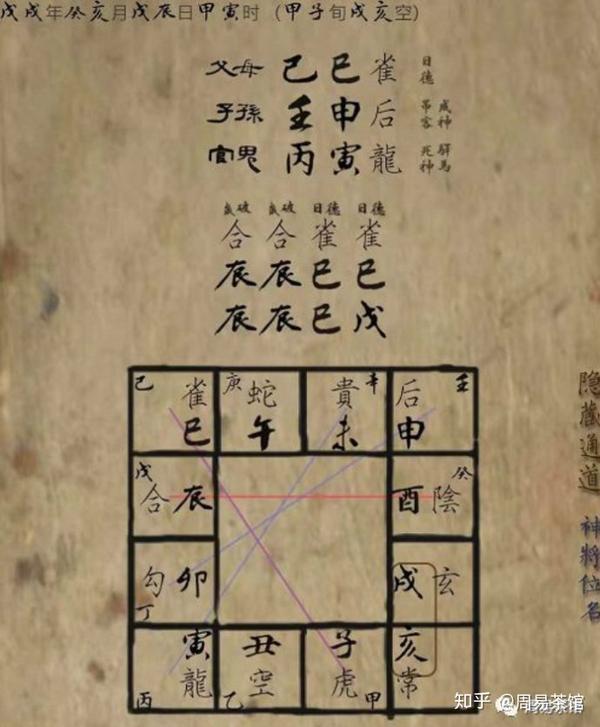 戊戌年癸亥月戊辰日甲寅时（甲子旬戌亥空）
父母 己 巳 雀 日德
子孫 壬 申 后 吊客 成神
官鬼 丙 寅 龍 死神 驛馬
歲破 歲破 日德 日德
合 合 雀 雀
辰 辰 巳 巳
辰 辰 巳 戊
己 雀 庚 蛇 貴 辛 后 壬
巳 午 未 申
戊 癸
合 辰 酉 陰
勾 卯 戌 玄
丁
寅 丑 子 亥
龍 空 虎 常
丙 乙 甲
隐藏通道
神將位名
知乎 @周易茶馆